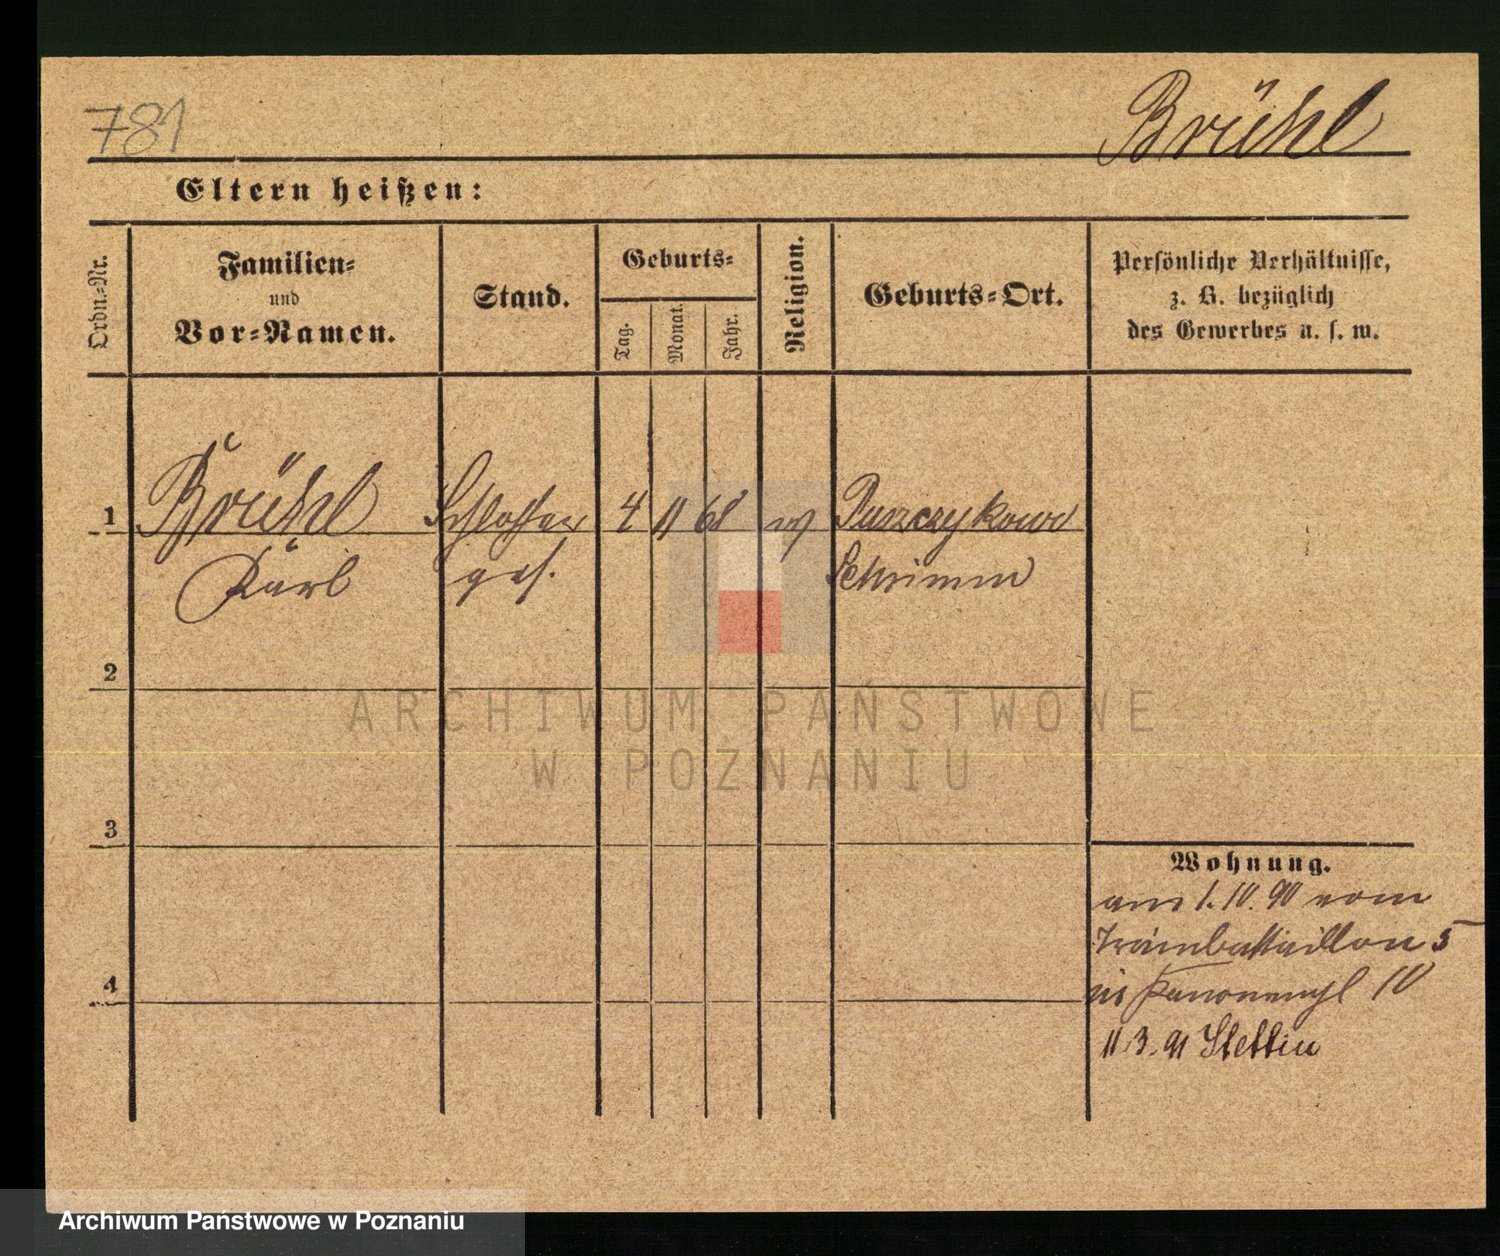 781
Brühl
Eltern heißen:
Ordn.-Nr.
Familien-
und
Vor-Namen.
Stand.
Geburts-
Tag.
Monat.
Jahr.
Religion.
Geburts-Ort.
Persönliche Verhältnisse,
z. B. bezüglich
des Gewerbes u. s. w.
1
Brühl
Schlosser
4
11
68
Puszczykowo
Karl
ges.
Schrimm
2
ARCHIWUM PAŃSTWOWE
W POZNANIU
3
Wohnung.
am 1.10.90 vom
Trainbattaillon 5
4
in Kanonenpl 10
11.3.91 Stettin
Archiwum Państwowe w Poznaniu